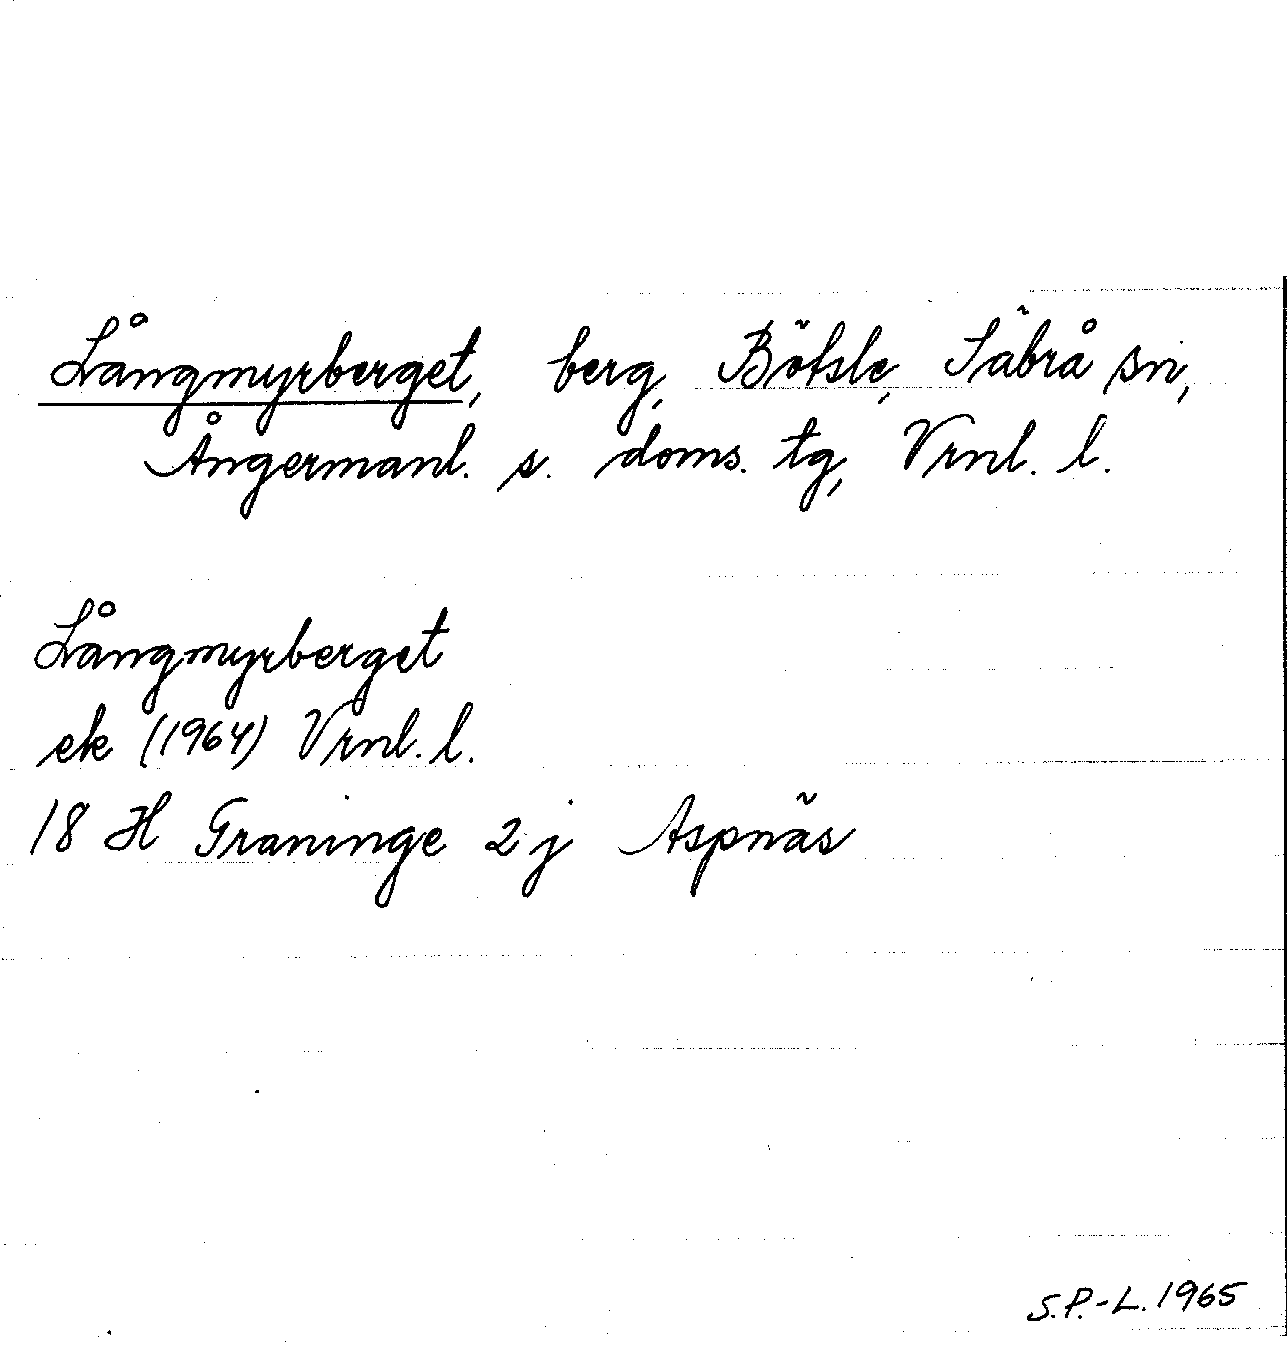 Långmyrberget, berg, Bötsle, Säbrå sn,
Ångermanl. s. doms. tg, Vrnl. l.
Långmyrberget
ek (1964) Vrnl. l.
18 H Graninge 2 j Aspnäs
S.P.-L. 1965